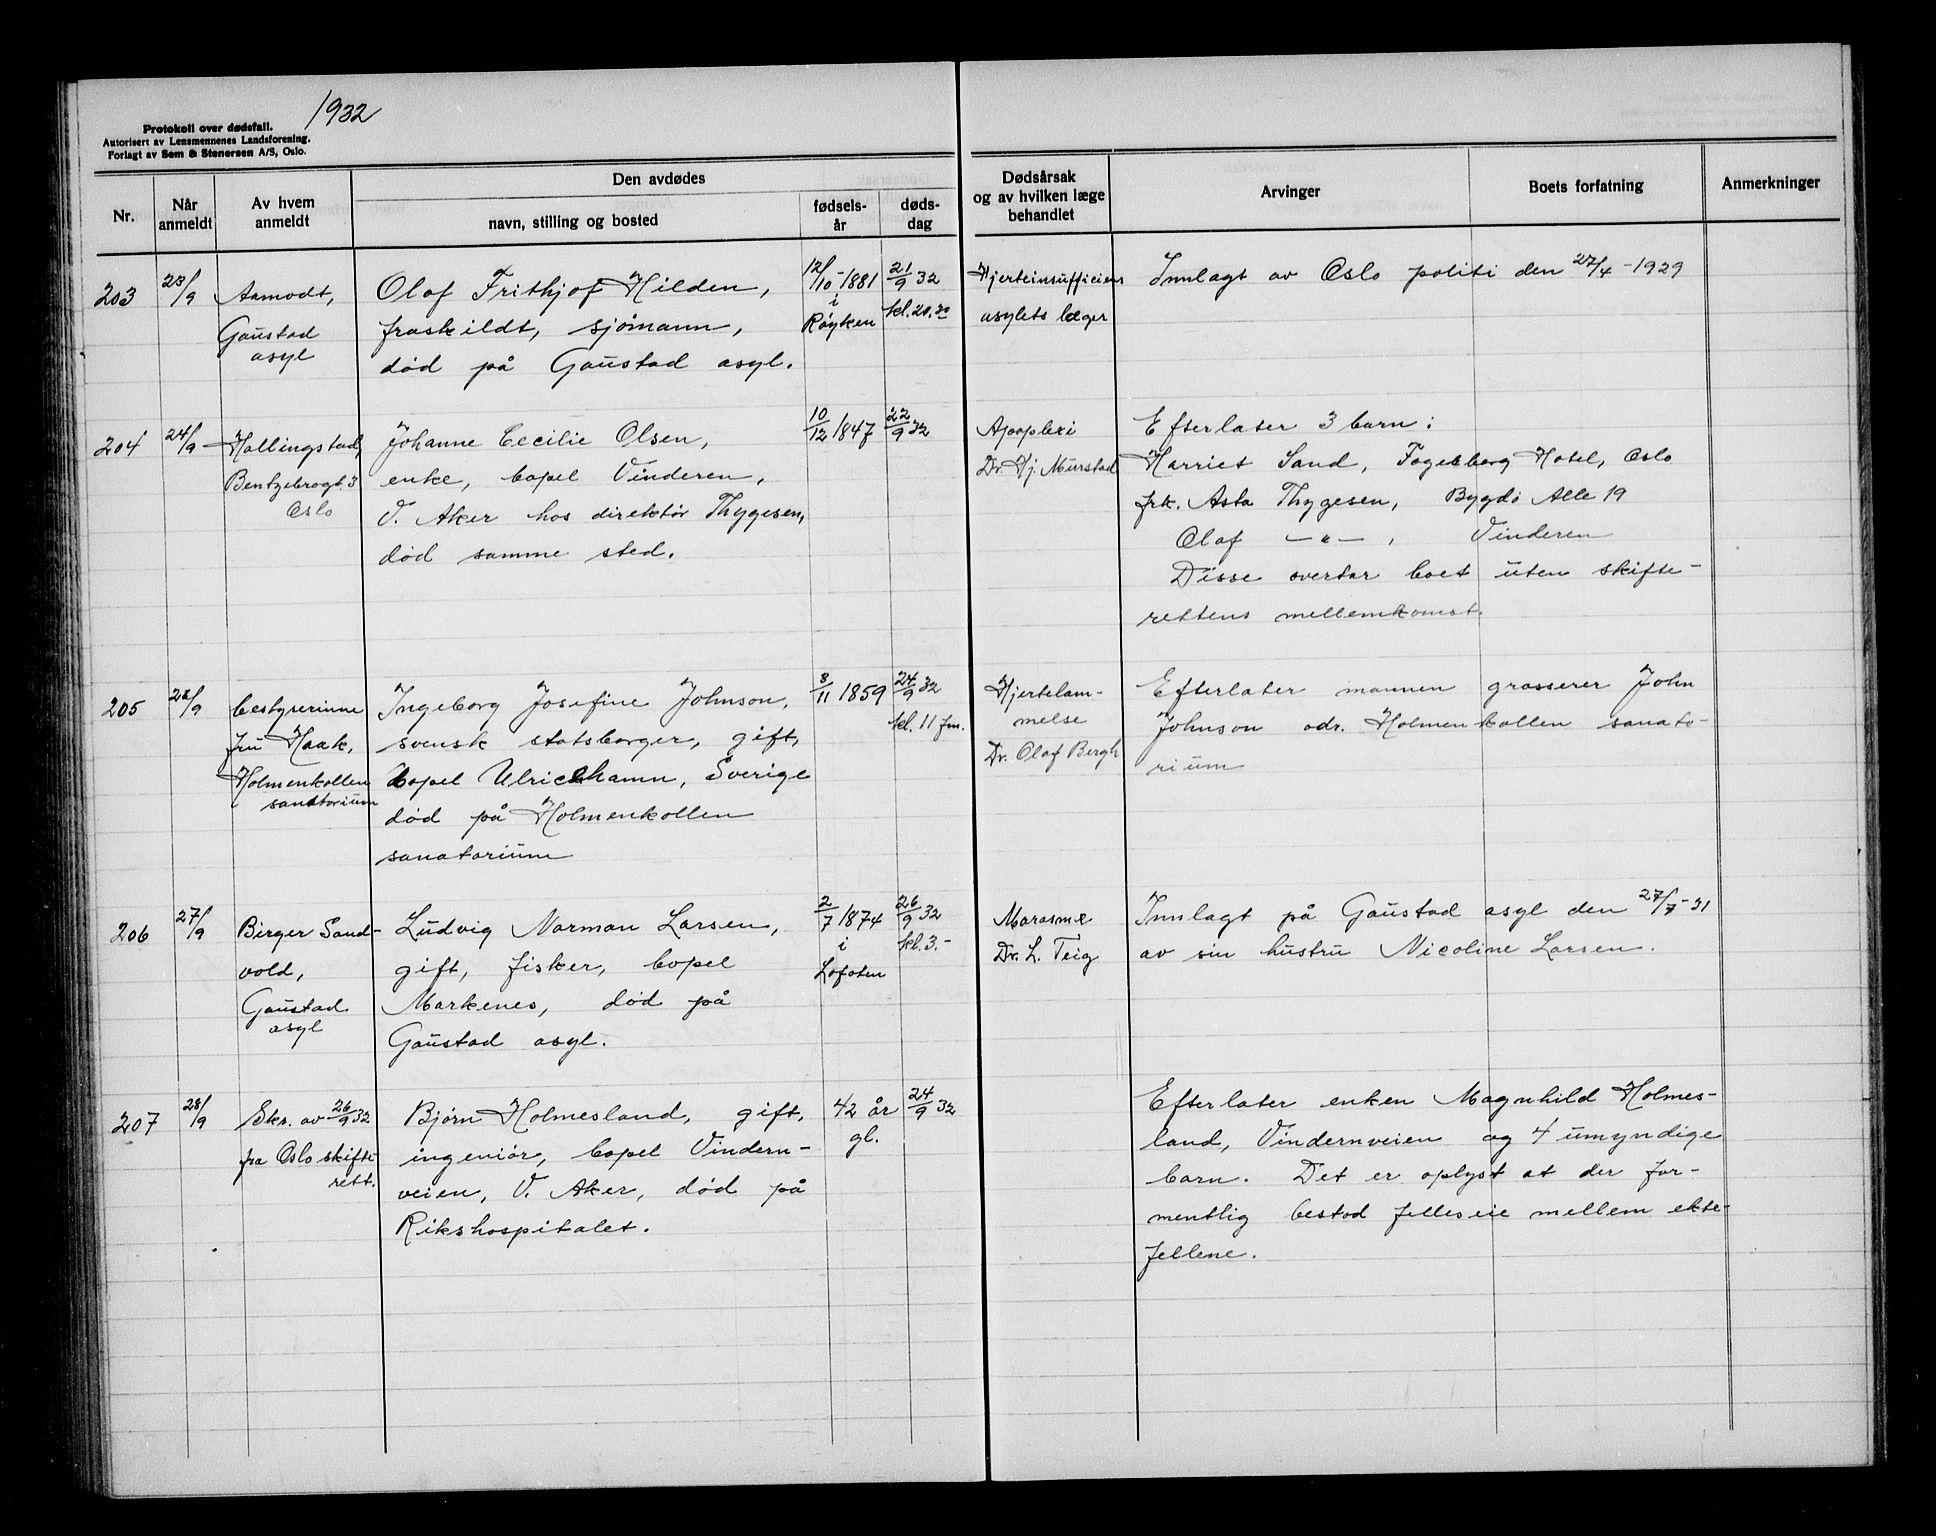 1932
Protokoll over dødsfall.
Autorisert av Lensmennenes Landsforening.
Forlagt av Sem & Stenersen A/S, Oslo.
Nr.
Når anmeldt
Av hvem anmeldt
Den avdødes
navn, stilling og bosted
fødsels-år
døds-dag
Dødsårsak
og av hvilken læge
behandlet
Arvinger
Boets forfatning
Anmerkninger
203
23/9
Aamodt,
Gaustad
asyl
Olaf Frithjof Hilden,
fraskildt, sjømann,
død på Gaustad asyl.
12/10-1881
i
Røyken
21/9 32
kl. 20.30
Hjerteinsufficiens
asylets læger
Innlagt av Oslo politi den 27/4-1929
204
24/9
Hallingstad,
Bentzebrogt. 3
Oslo
Johanne Cecilie Olsen,
enke, bopel Vinderen,
V. Aker hos direktør Thygesen,
død samme sted.
10/12 1847
22/9 32
Apoplexi
Dr. Hj. Murstad
Efterlater 3 barn:
Harriet Sand, Fagerborg Hotel, Oslo
frk. Asta Thygesen, Bygdø Alle 19
Olaf —"— , Vinderen
Disse overtar boet uten skifte-
rettens mellemkomst.
205
28/9
bestyrerinne
fru Haak,
Holmenkollen
sanatorium
Ingeborg Josefine Johnson,
svensk statsborger, gift,
bopel Ulricehamn, Sverige
død på Holmenkollen
sanatorium
3/11 1859
24/9 32
kl. 11 fm.
Hjertelam-
melse
Dr. Olaf Bergh
Efterlater mannen grosserer John
Johnson adr. Holmenkollen sanato-
rium
206
27/9
Birger Sand-
vold,
Gaustad
asyl
Ludvig Norman Larsen,
gift, fisker, bopel
Markenes, død på
Gaustad asyl.
2/7 1874
i
Lofoten
26/9 32
kl. 3.-
Marasme
Dr. L. Teig
Innlagt på Gaustad asyl den 27/7-31
av sin hustru Nicoline Larsen.
207
28/9
Skr. av 26/9 32
fra Oslo skifte-
rett.
Bjørn Holmesland, gift,
ingeniør, bopel Vindern-
veien, V. Aker, død på
Rikshospitalet.
42 år
gl.
24/9 32
Efterlater enken Magnhild Holmes-
land, Vindernveien og 4 umyndige
barn. Det er oplyst at der for-
mentlig bestod felleseie mellem ekte-
fellene.